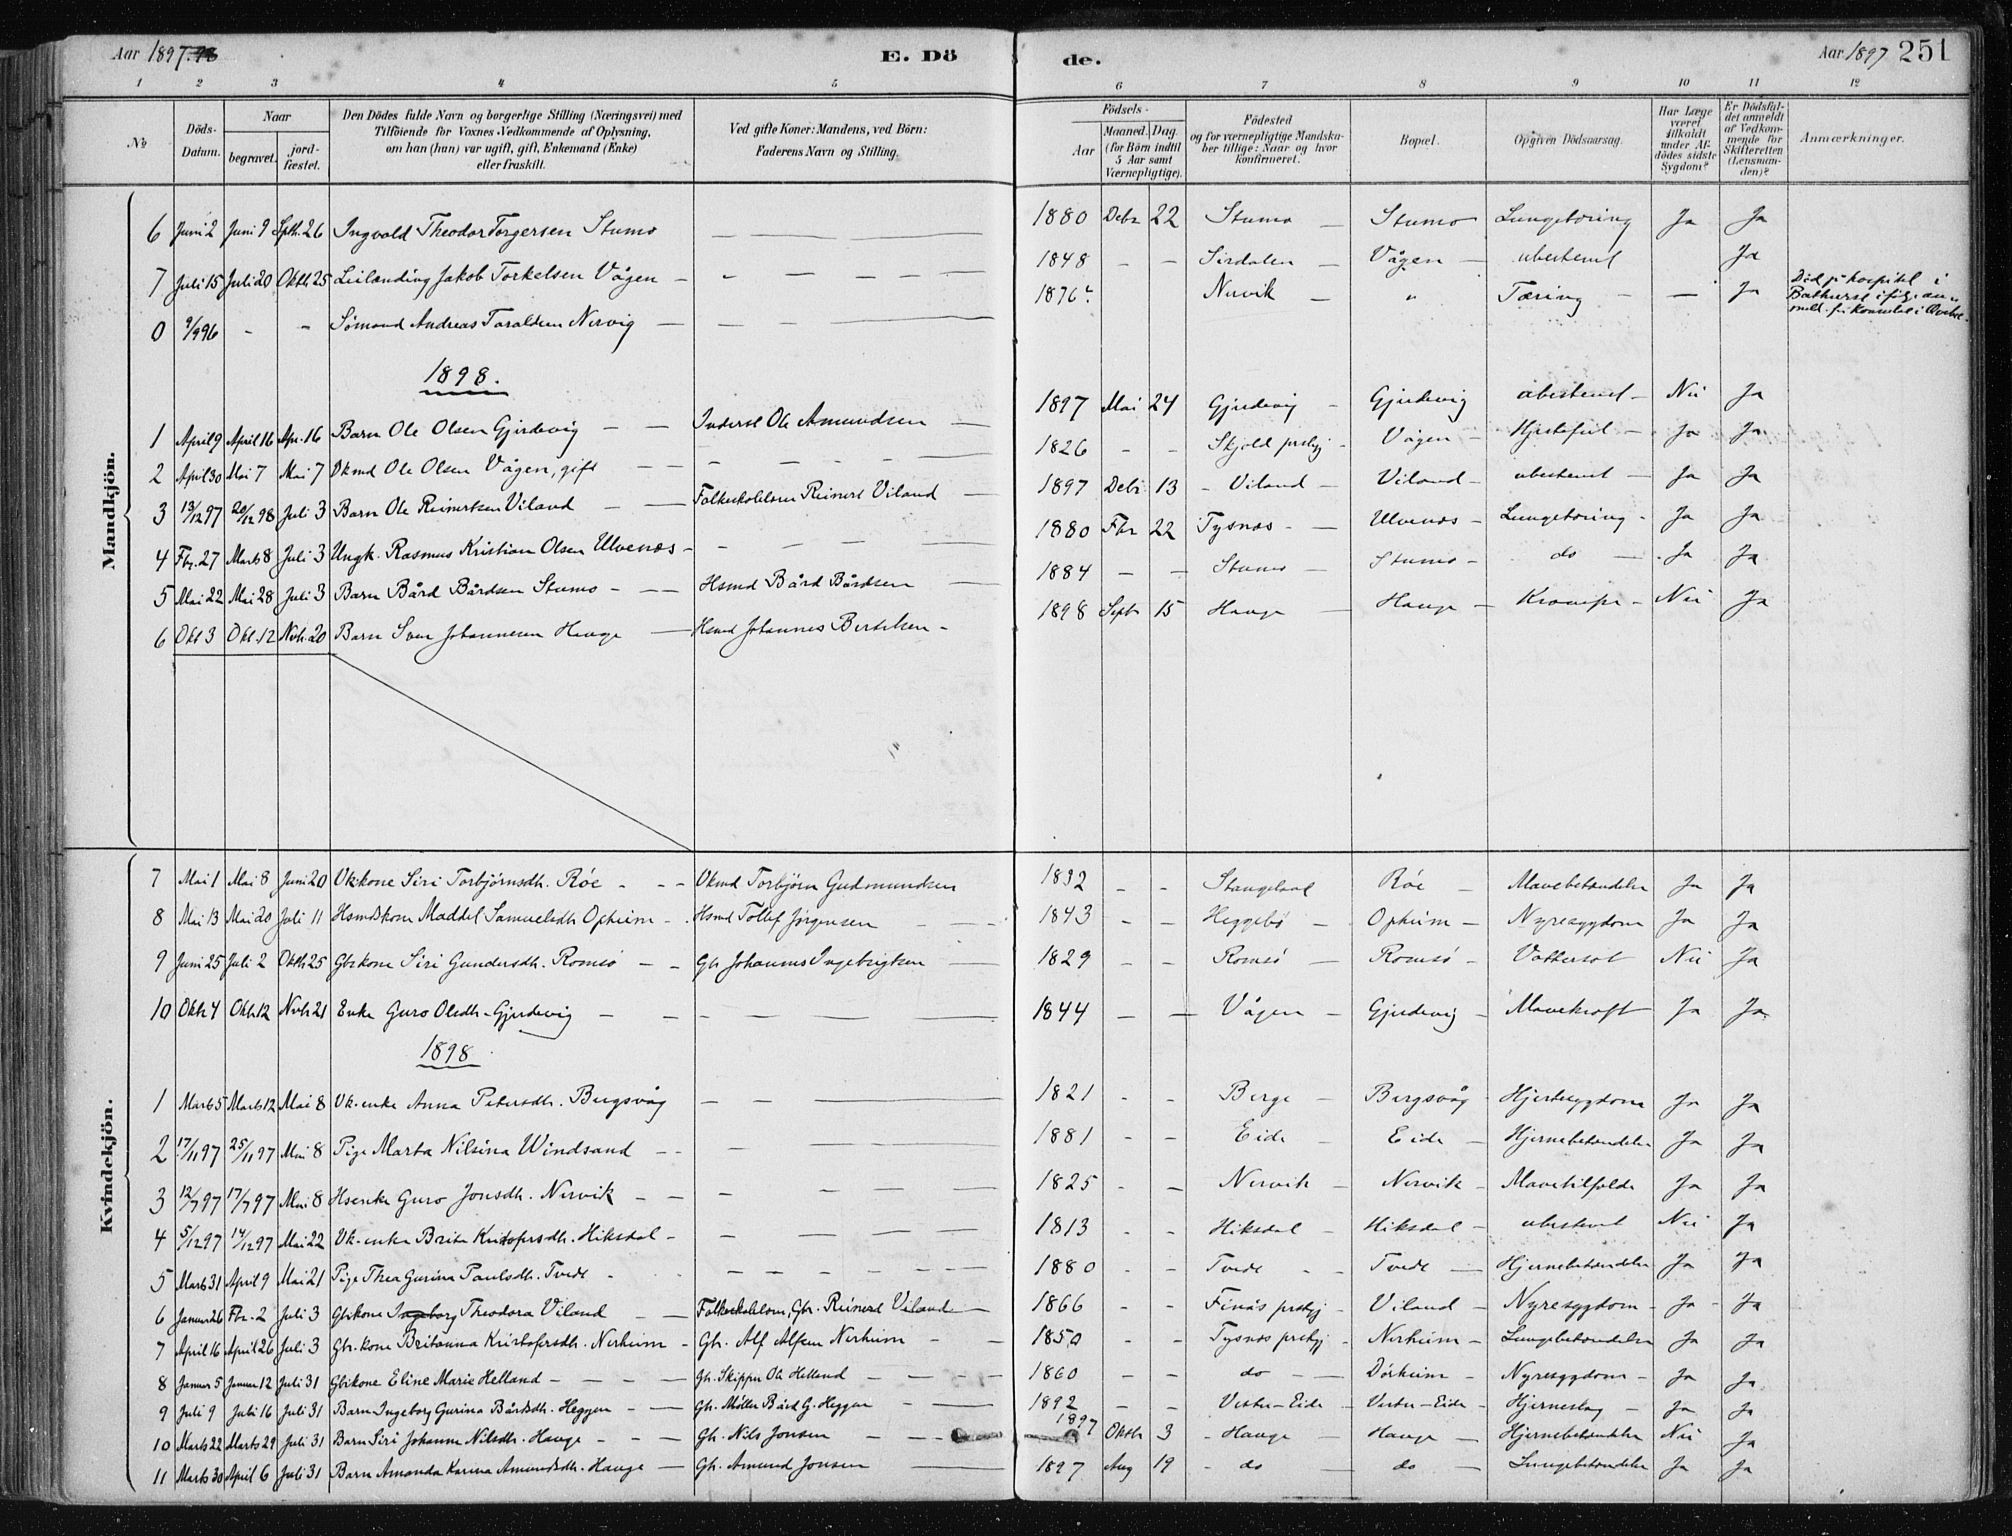 Aar 1897. 98 E. Dö de. Aar 1897 251
1 2 3 4 5 6 7 8 9 10 11 12
№ Döds-Datum. Naar begravet. jordfæstet. Den Dödes fulde Navn og borgerlige Stilling (Næringsvei) med Tilföiende for Voxnes Vedkommende af Oplysning, om han (hun) var ugift, gift, Enkemand (Enke) eller fraskilt. Ved gifte Koner: Mandens, ved Börn: Faderens Navn og Stilling. Födsels- Aar Maaned. Dag. (for Börn indtil 5 Aar samt Værnepligtige). Födested og for værnepligtige Mandskaber tillige: Naar og hvor konfirmeret. Bopæl. Opgiven Dödsaarsag. Har Læge været tilkaldt under Afdödes sidste Sygdom? Er Dödsfaldet anmeldt af Vedkommende for Skifteretten (Lensmanden)? Anmærkninger.
Mandkjön.
6 Juni 2 Juni 9 Spth. 26 Ingvald Theodor Torgersen Stumo — — — 1880 Debr 22 Stumo — Stumo Lungetæring Ja Ja
7 Juli 15 Juli 20 Oktb 25 Leilænding Jakob Torkelsen Vågen — — — 1848 — — Sirdalen — Vågen — ubestemt Ja
0 9/9 96 - " Sömand Andreas Taraldsen Nervig — — — 1876 Nervik — " Tæring — — Ja Död på hospital i Bathurst
1898.
1 April 9 April 16 Apr. 16 Barn Ole Olsen Gjerdevig — — Inderst Ole Amundsen — 1897 Mai 24 Gjerdevig — Gjerdevig ubestemt — Nei Ja
2 April 30 Mai 7 Mai 7 Vkmd Ole Olsen Vågen, gift — — — 1826 - - Skjold prstgj - Vågen — Hjertefeil — Ja Ja
3 13/12 97 20/12 98 Juli 3 Barn Ole Reinertsen Viland — — Folkeskolelærer Reinert Viland — 1897 Debr 13 - Viland — Viland - ubestemt — Ja Ja
4 Fbr. 27 Marts 8 Juli 3 Ungk. Rasmus Kristian Olsen Ulvenæs - — — 1880 Fbr 22 Tysnæs - — Ulvenæs - Lungetæring - Ja Ja
5 Mai 22 Mai 28 Juli 3 Barn Bård Bårdsen Stumo — — Hsmd Bård Bårdsen — 1884 — — Stumo — Stumo - do — Ja Ja
6 Okt 3 Okt. 12 Nvb. 20 Barn Sven Johannesen Hauge — Hsmd Johannes Bertelsen - 1898 Sept 15 Hauge — Hauge — Krampe - Nei Ja
Kvindekjön.
7 Mai 1 Mai 8 Juni 20 Vkkone Siri Torbjörnsdtr. Röe - - - Vkmd Torbjörn Gudmundsen 1832 - - Stangeland Röe — Mavebetændelse Ja Ja
8 Mai 13 Mai 20 Juli 11 Hsmdskone Maddel Samuelsdtr Opheim - Hsmd Tollef Jörgensen — 1843 - - Heggebö — Opheim — Nyresygdom Ja Ja
9 Juni 25 Juli 2 Oktb 25 Gbrkone Siri Gundersdtr. Romsö — - Gbr Johannes Ingebrigtsen — 1829 - - Romsö — Romsö - Vattersot Nei Ja
10 Oktb 4 Oktb 12 Nvb 21 Enke Guro Olsdtr. Gjerdevig — — — 1844 — — Vågen — Gjerdevig — Mavekræft Ja Ja
1898
1 Marts 5 Marts 12 Mai 8 Vk-enke Anna Petersdtr. Bergsvåg — — — 1821 - - Berge — Bergsvåg - Hjertesygdom Ja Ja
2 17/11 97 25/11 97 Mai 8 Pige Marta Nilsina Windsand — - — 1881 - - Eide — Eide — Hjernebetændelse Ja Ja
3 12/7 97 17/7 97 Mai 8 Hsenke Guro Jonsdtr. Nervik — — — 1825 - - Nervik — Nervik — Mavetilfælde Ja Ja
4 5/12 97 14/12 97 Mai 22 Vk-enke Brita Kristofersdtr. Hiksdal - — — 1813 - - Hiksdal — Hiksdal - ubestemt Nei Ja
5 Marts 31 April 9 Mai 21 Pige Thea Gurina Paulsdtr. Tvedt - — — 1880 - - Tvedt - - Tvedt — Hjernebetændelse Ja Ja
6 Januar 26 Fbr. 2 Juli 3 Gbrkone Ingeborg Theodora Viland — — Folkeskolelærer, Gbr. Reinert Viland — 1866 - - Finås prstgj - Viland — Nyresygdom - Ja - Ja
7 April 16 April 26 Juli 3 Gbr. kone Britanna Kristofersdtr. Nerheim - Gbr. Alf Alfsen Nerheim - - 1850 - - Tysnæs prstgj - Nerheim - Lungebetændelse Ja Ja
8 Januar 5 Januar 12 Juli 31 Gbrkone Eline Marie Helland — — — Gbr. Skipper Ole Helland — 1860 - - do — Dörheim — Nyresygdom - Ja Ja
9 Juli 9 Juli 16 Juli 31 Barn Ingeborg Gurina Bårdsdtr. Heggen — — Gbr. Møller Bård G. Heggen — 1892 — — Vester-Eide - Vester-Eide - Hjerneslag — Ja Ja
10 Marts 22 Marts 29 Juli 31 Barn Siri Johanna Nilsdtr. Hauge - - — Gbr. Nils Jonsen — 1897 Oktb 3 - Hauge — Hauge — Hjernebetændelse Nei Ja
11 Marts 30 April 6 Juli 31 Barn Amanda Karina Amundsdtr. Hauge — Gbr. Amund Jonsen — 1897 Aug 19 - do — do — Lungebetændelse Ja Ja